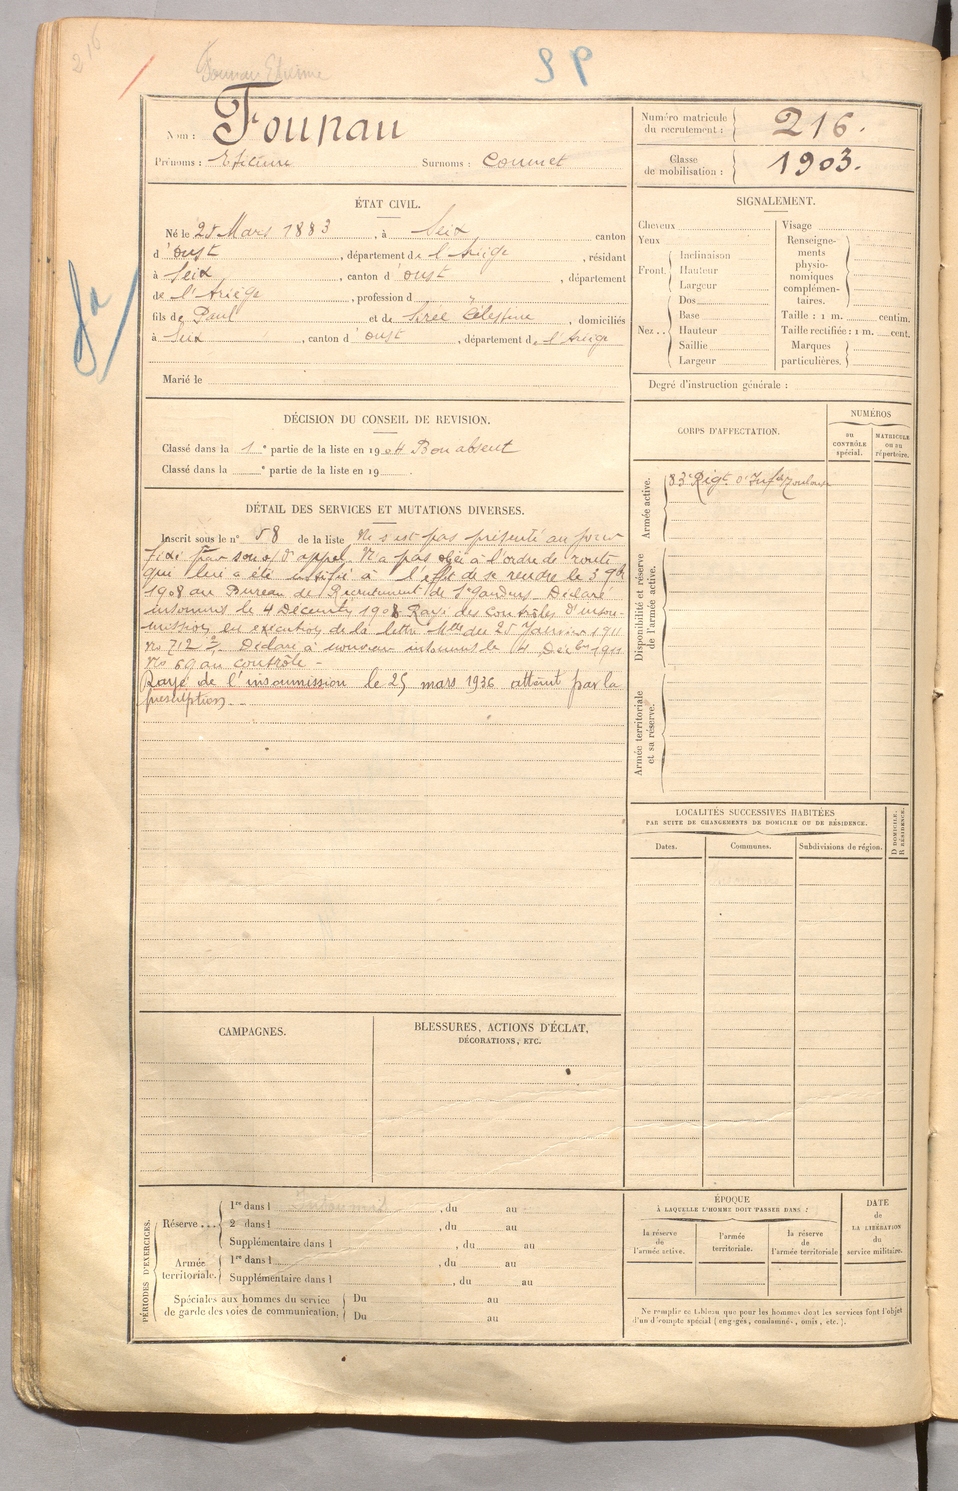 216
Founau Etienne
SP
Nom : Founau
Prénoms : Etienne Surnoms : Coumet
Numéro matricule du recrutement : 216.
Classe de mobilisation : 1903.
ÉTAT CIVIL.
Né le 25 Mars 1883, à Seix canton
d'Oust, département de l'Ariège, résidant
à Seix, canton d'Oust, département
de l'Ariège, profession d "
fils de Paul et de Célestine, domiciliés
à Seix, canton d'Oust, département de l'Ariège
Marié le
DÉCISION DU CONSEIL DE REVISION.
Classé dans la 1e partie de la liste en 1904 Bon absent
Classé dans la e partie de la liste en 19 .
DÉTAIL DES SERVICES ET MUTATIONS DIVERSES.
Inscrit sous le n° 58 de la liste Ne s'est pas présenté au jour
fixé pour son appel. N'a pas obéi à l'ordre de route
qui lui a été notifié à l'effet de se rendre le 3 9bre
1908 au Bureau de Recrutement de St Gaudens. Déclaré
insoumis le 4 Décembre 1908 Rayé des contrôles d'insou-
mission en exécution de la lettre Mlle du 25 Janvier 1911
No 712 Déclaré à nouveau insoumis le 4 Décbre 1911
No 69 au contrôle -
Rayé de l'insoumission le 25 mars 1936 atteint par la
prescription.
SIGNALEMENT.
Cheveux
Yeux
Front. Inclinaison
Hauteur
Largeur
Nez .. Dos
Base
Hauteur
Saillie
Largeur
Visage
Renseigne-
ments
physio-
nomiques
complémen-
taires.
Taille : 1 m. centim.
Taille rectifiée : 1 m. cent.
Marques
particulières.
Degré d'instruction générale :
CORPS D'AFFECTATION.
NUMÉROS
DU CONTRÔLE spécial.
MATRICULE OU AU répertoire.
Armée active.
83e Régt d'Infie Toulouse
Disponibilité et réserve de l'armée active.
Armée territoriale et sa réserve.
LOCALITÉS SUCCESSIVES HABITÉES
PAR SUITE DE CHANGEMENTS DE DOMICILE OU DE RÉSIDENCE.
Dates.
Communes.
Subdivisions de région.
D DOMICILE.
R RÉSIDENCE.
CAMPAGNES.
BLESSURES, ACTIONS D'ÉCLAT,
DÉCORATIONS, ETC.
PÉRIODES D'EXERCICES.
Réserve ... 1re dans l Insoumis, du au
2 dans l , du au
Supplémentaire dans l , du au
Armée territoriale. 1re dans l , du au
Supplémentaire dans l , du au
Spéciales aux hommes du service
de garde des voies de communication. Du au
Du au
ÉPOQUE
À LAQUELLE L'HOMME DOIT PASSER DANS :
la réserve de l'armée active.
l'armée territoriale.
la réserve de l'armée territoriale
DATE de LA LIBÉRATION du service militaire.
Ne remplir ce tableau que pour les hommes dont les services font l'objet
d'un décompte spécial (engagés, condamnés, omis, etc.).